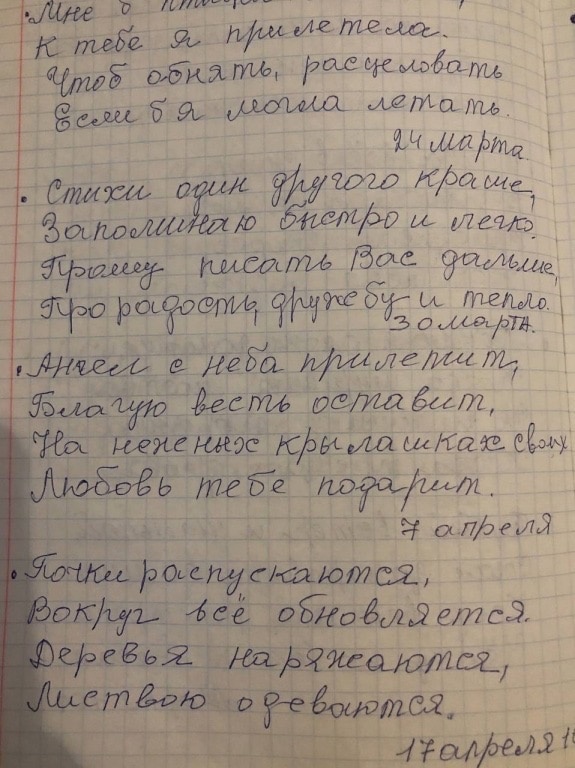 Мне б
К тебе я прилетела.
Чтоб обнять, расцеловать
Если б я могла летать.
24 марта.
• Стихи один другого краше,
Запоминаю быстро и легко.
Прошу писать Вас дальше,
Про радость, дружбу и тепло.
30 марта.
• Ангел с неба прилетит,
Благую весть оставит,
На нежных крылашках своих
Любовь тебе подарит.
7 апреля
• Почки распускаются,
Вокруг всё обновляется.
Деревья наряжаются,
Листвою одеваются.
17 апреля